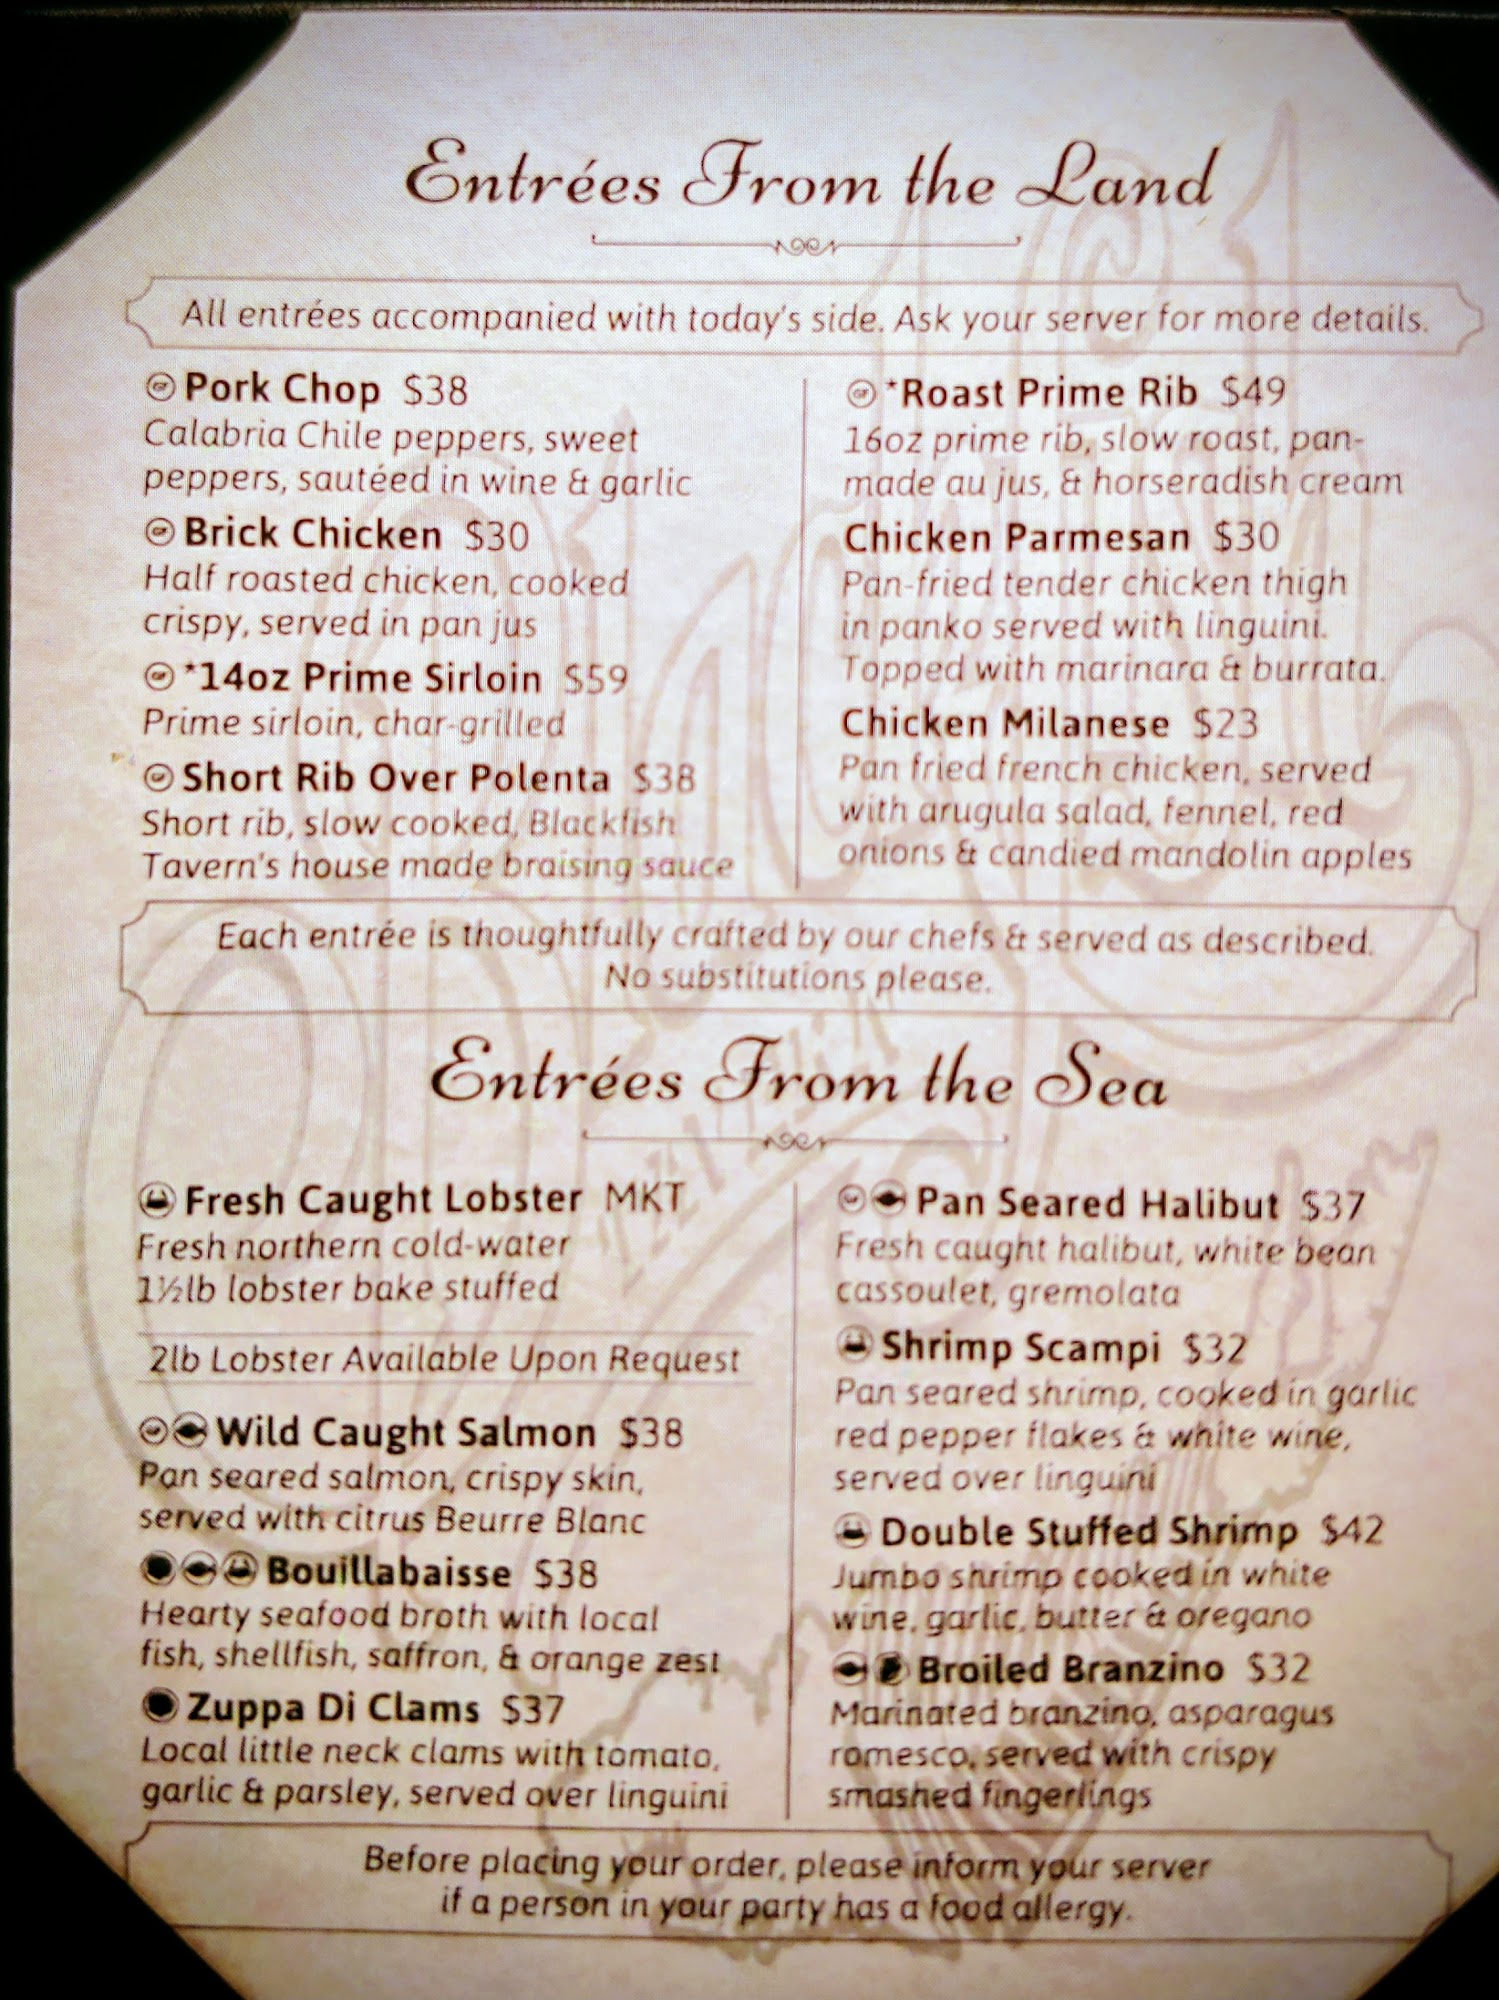 Entrées From the Land
All entrées accompanied with today's side. Ask your server for more details.
Pork Chop $38
Calabria Chile peppers, sweet
peppers, sautéed in wine & garlic
Brick Chicken $30
Half roasted chicken, cooked
crispy, served in pan jus
*14oz Prime Sirloin $59
Prime sirloin, char-grilled
Short Rib Over Polenta $38
Short rib, slow cooked, Blackfish
Tavern's house made braising sauce
*Roast Prime Rib $49
16oz prime rib, slow roast, pan-
made au jus, & horseradish cream
Chicken Parmesan $30
Pan-fried tender chicken thigh
in panko served with linguini.
Topped with marinara & burrata.
Chicken Milanese $23
Pan fried french chicken, served
with arugula salad, fennel, red
onions & candied mandolin apples
Each entrée is thoughtfully crafted by our chefs & served as described.
No substitutions please.
Entrées From the Sea
Fresh Caught Lobster MKT
Fresh northern cold-water
1½lb lobster bake stuffed
2lb Lobster Available Upon Request
Wild Caught Salmon $38
Pan seared salmon, crispy skin,
served with citrus Beurre Blanc
Bouillabaisse $38
Hearty seafood broth with local
fish, shellfish, saffron, & orange zest
Zuppa Di Clams $37
Local little neck clams with tomato,
garlic & parsley, served over linguini
Pan Seared Halibut $37
Fresh caught halibut, white bean
cassoulet, gremolata
Shrimp Scampi $32
Pan seared shrimp, cooked in garlic
red pepper flakes & white wine,
served over linguini
Double Stuffed Shrimp $42
Jumbo shrimp cooked in white
wine, garlic, butter & oregano
Broiled Branzino $32
Marinated branzino, asparagus
romesco, served with crispy
smashed fingerlings
Before placing your order, please inform your server
if a person in your party has a food allergy.